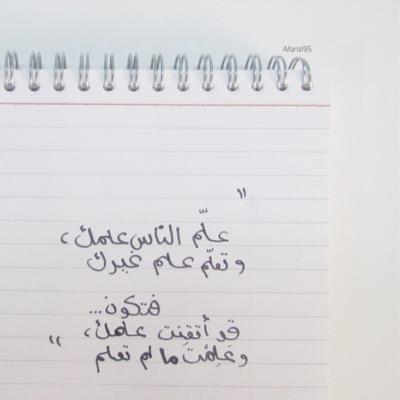 iManal95
"
علّم الناس علمك،
وتعلّم علم غيرك
فتكون...
قد أتقنت علمك،
وعَلِمْتَ ما لم تعلم "